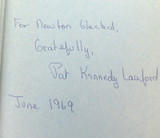 For Newton Glekel,
Gratefully,
Pat Kennedy Lawford
June 1969